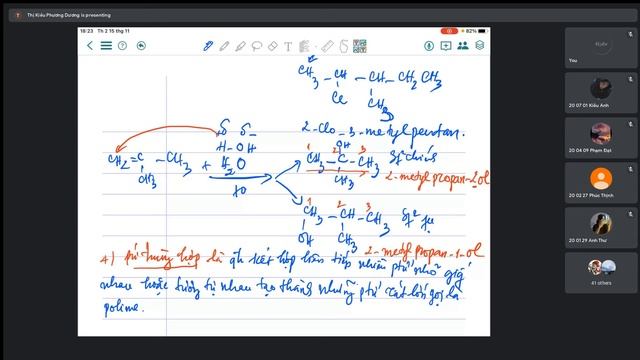 Thị Kiều Phương Dương is presenting
18:23 Th 2 15 thg 11
82%
CH3 - CH - CH - CH2 CH3
Cl CH3
2-Clo-3-metylpentan.
δ δ-
H-OH
CH2=C-CH3 + H2O
CH3
to
OH
1 2 3
CH3-C-CH3
CH3
2-metyl propan-2-ol
1 2 3
CH3-CH-CH3
OH CH3
2-metyl propan-1-ol
4) trùng hợp là kết hợp liên tiếp nhiều ptử nhỏ giống
nhau hoặc tương tự nhau tạo thành những ptử rất lớn gọi là
polime.
You
20 07 01 Kiều Anh
20 04 09 Phạm Đạt
20 02 27 Phúc Thịnh
20 01 29 Anh Thư
41 others